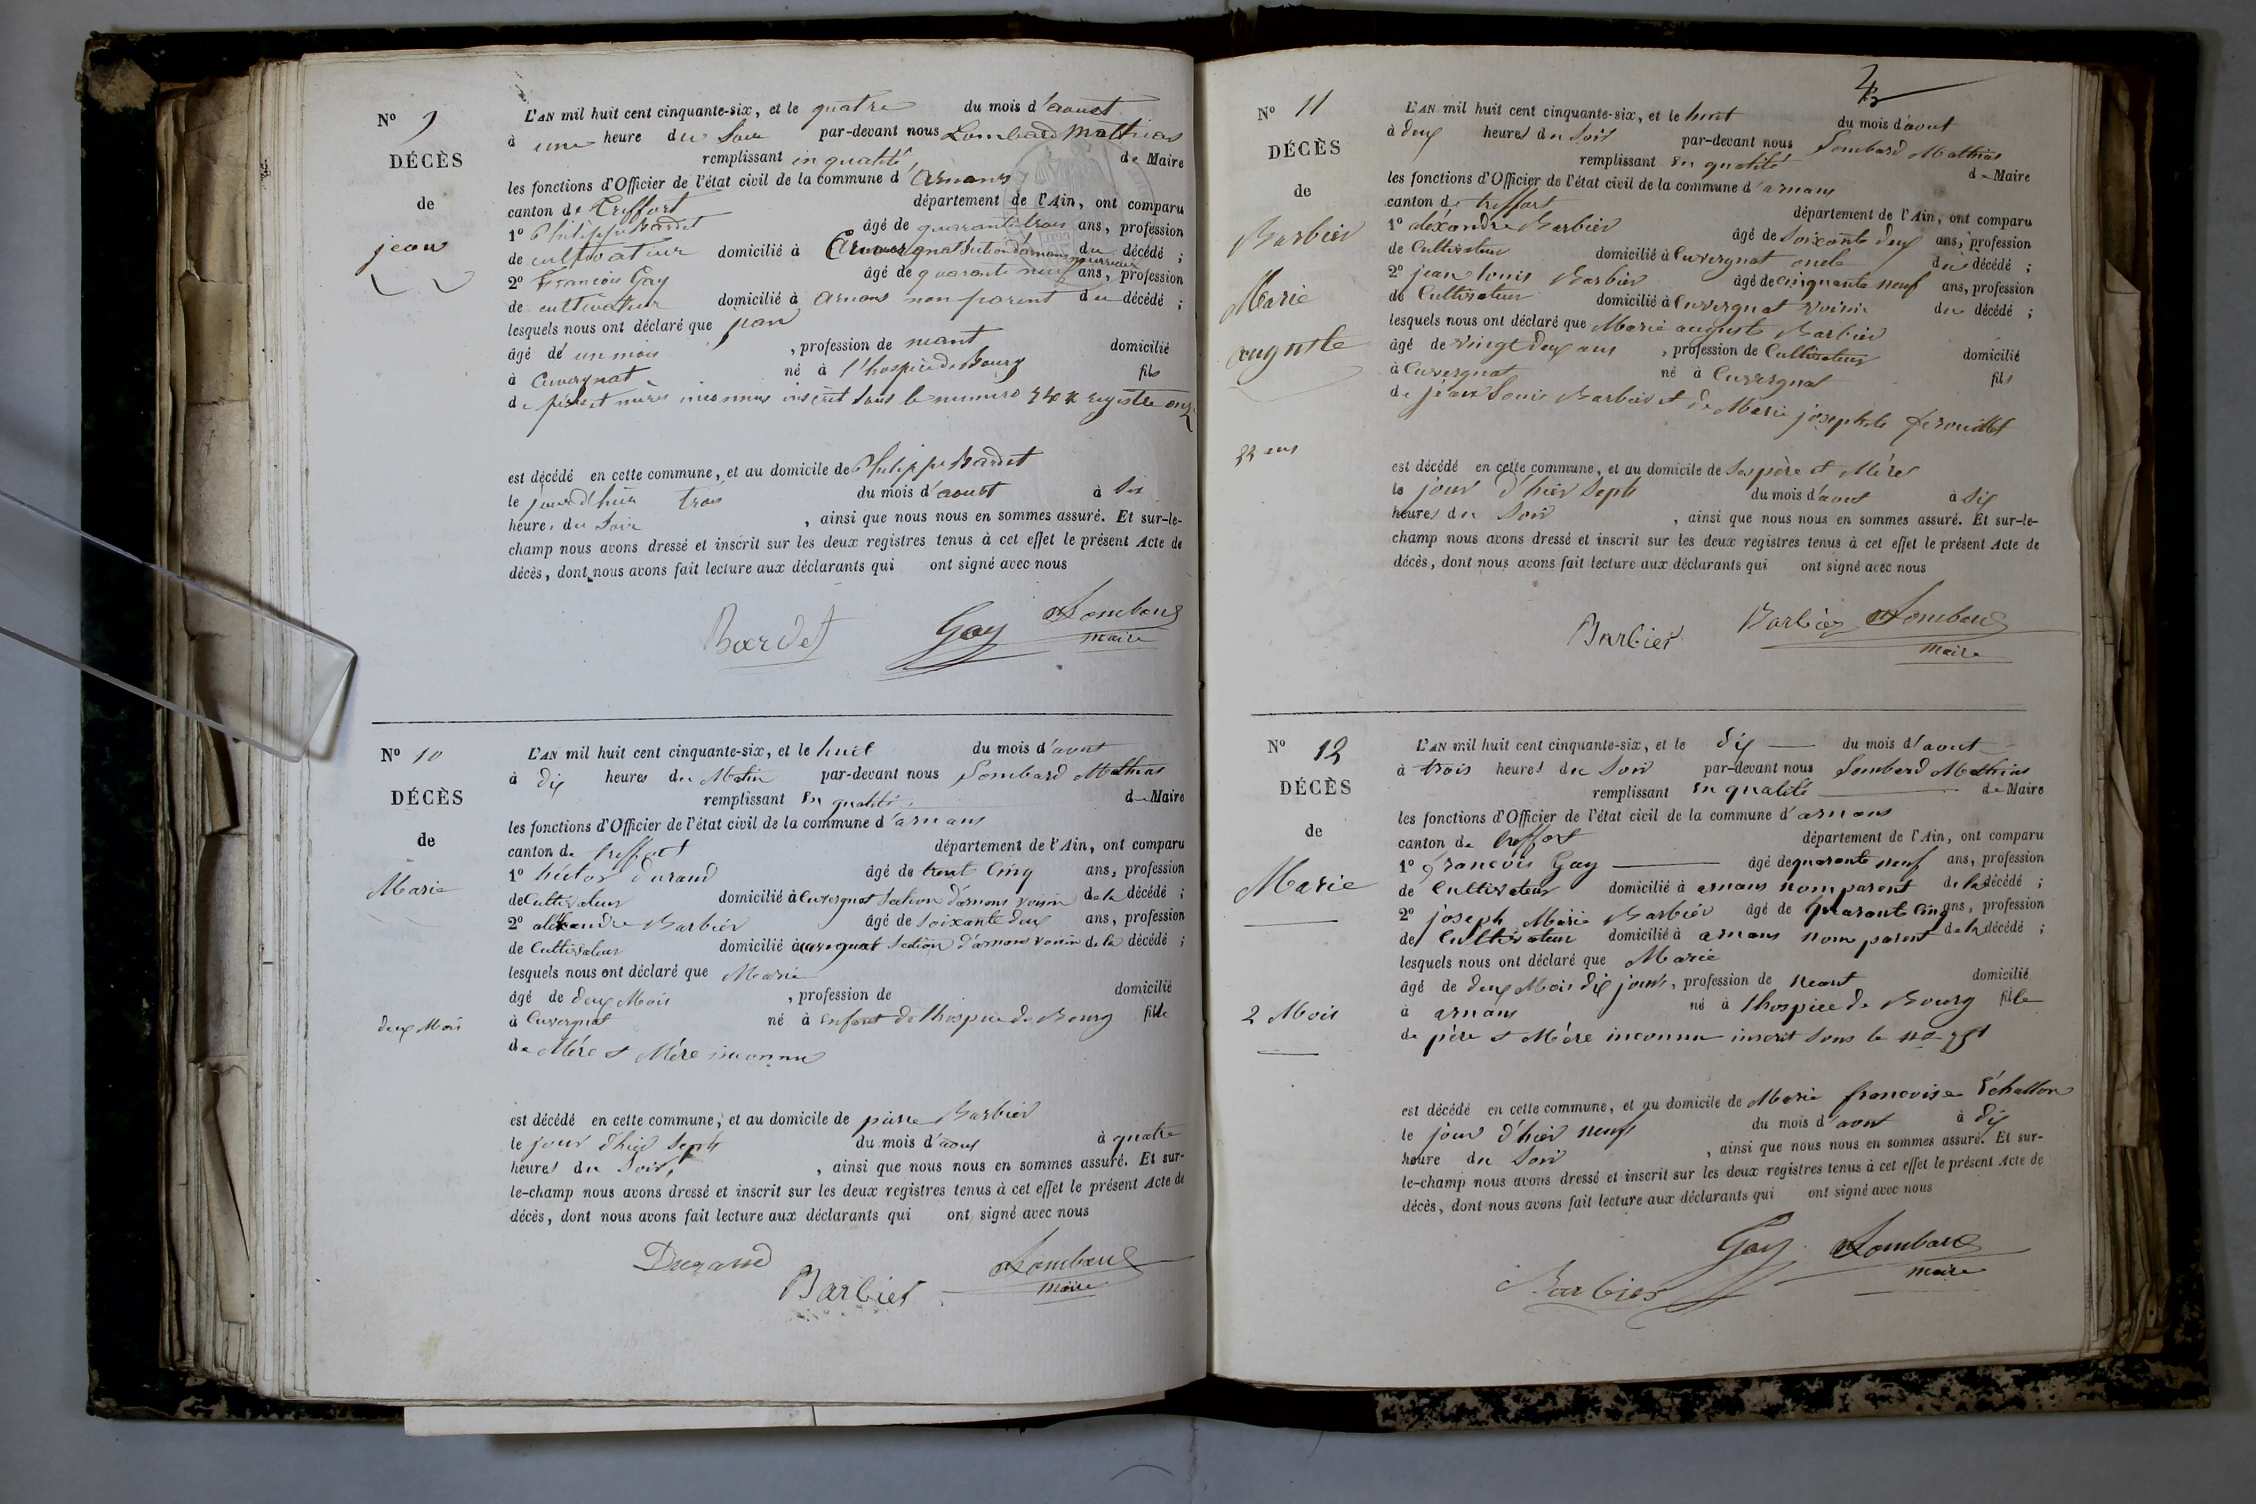 Nº 9
DÉCÈS
de
jean
L'AN mil huit cent cinquante-six, et le quatre du mois d'aoust
à une heure du Soir par-devant nous Lombard Mathias
remplissant en qualité de Maire
les fonctions d'Officier de l'état civil de la commune d'Arnans
canton de Treffort département de l'Ain, ont comparu
1º Philippe Bardet âgé de quarante trois ans, profession
de cultivateur domicilié à du décédé ;
2º Francois Gay âgé de quarante neuf ans, profession
de cultivateur domicilié à arnans non parent du décédé ;
lesquels nous ont déclaré que jean
âgé de un mois , profession de neant domicilié
à Cuvergnat né à l'hospice de Bourg fils
de père et mère inconnus inscrit sous le numero registre onze
est décédé en cette commune, et au domicile de Philippe Bardet
le jour d'hier trois du mois d'aoust à six
heures du Soir , ainsi que nous nous en sommes assuré. Et sur-le-
champ nous avons dressé et inscrit sur les deux registres tenus à cet effet le présent Acte de
décès, dont nous avons fait lecture aux déclarants qui ont signé avec nous
Bardet Gay Lombard
maire
Nº 10
DÉCÈS
de
Marie
deux Mois
L'AN mil huit cent cinquante-six, et le huit du mois d'aout
à dix heures du Matin par-devant nous Lombard Mathias
remplissant en qualité de Maire
les fonctions d'Officier de l'état civil de la commune d'arnans
canton de treffort département de l'Ain, ont comparu
1º héctor durand âgé de trent Cinq ans, profession
de Cultivateur domicilié à Cuvergnat Section d'arnans voisin de la décédé ;
2º alexandre Barbier âgé de soixante deux ans, profession
de Cultivateur domicilié à cuvergnat Section d'arnans voisin de la décédé ;
lesquels nous ont déclaré que Marie
âgé de deux Mois , profession de domicilié
à Cuvergnat né à enfant de l'hospice de Bourg fille
de Mére et Mére inconnu
est décédé en cette commune, et au domicile de pierre Barbier
le jour d'hier Sept du mois d'aout à quatre
heures du Soir , ainsi que nous nous en sommes assuré. Et sur-
le-champ nous avons dressé et inscrit sur les deux registres tenus à cet effet le présent Acte de
décès, dont nous avons fait lecture aux déclarants qui ont signé avec nous
Durand Barbier Lombard
maire
Nº 11
DÉCÈS
de
Barbier
Marie
auguste
22 ans
L'AN mil huit cent cinquante-six, et le huit du mois d'aout
à deux heures du Soir par-devant nous Lombard Mathias
remplissant en qualité de Maire
les fonctions d'Officier de l'état civil de la commune d'arnans
canton de treffort département de l'Ain, ont comparu
1º aléxandre Barbier âgé de Soixante deux ans, profession
de Cultivateur domicilié à Cuvergnat oncle du décédé ;
2º jean louis Barbier âgé de cinquante neuf ans, profession
de Cultivateur domicilié à Cuvergnat voisin du décédé ;
lesquels nous ont déclaré que Marie auguste Barbier
âgé de vingt deux ans , profession de Cultivateur domicilié
à Cuvergnat né à Cuvergnat fils
de jean Louis Barbier et de Marie josephte férouillet
est décédé en cette commune, et au domicile de Ses père et Mére
le jour d'hier Sept du mois d'aout à Six
heures du Soir , ainsi que nous nous en sommes assuré. Et sur-le-
champ nous avons dressé et inscrit sur les deux registres tenus à cet effet le présent Acte de
décès, dont nous avons fait lecture aux déclarants qui ont signé avec nous
Barbier Barbier Lombard
Maire
Nº 12
DÉCÈS
de
Marie
2 Mois
L'AN mil huit cent cinquante-six, et le dix du mois d'aout
à trois heures du Soir par-devant nous Lombard Mathias
remplissant en qualité de Maire
les fonctions d'Officier de l'état civil de la commune d'arnans
canton de treffort département de l'Ain, ont comparu
1º francois Gay âgé de quarante neuf ans, profession
de Cultivateur domicilié à arnans nom parent de la décédé ;
2º joseph Marie Barbier âgé de quarante Cinq ans, profession
de Cultivateur domicilié à arnans nom parent de la décédé ;
lesquels nous ont déclaré que Marie
âgé de deux Mois dix jours, profession de neant domicilié
à arnans né à l'hospice de Bourg fille
de père et Mére inconnu inscrit sous le no
est décédé en cette commune, et au domicile de Marie francoise Échallon
le jour d'hier neuf du mois d'aout à dix
heure du Soir , ainsi que nous nous en sommes assuré. Et sur-
le-champ nous avons dressé et inscrit sur les deux registres tenus à cet effet le présent Acte de
décès, dont nous avons fait lecture aux déclarants qui ont signé avec nous
Barbier Gay Lombard
maire